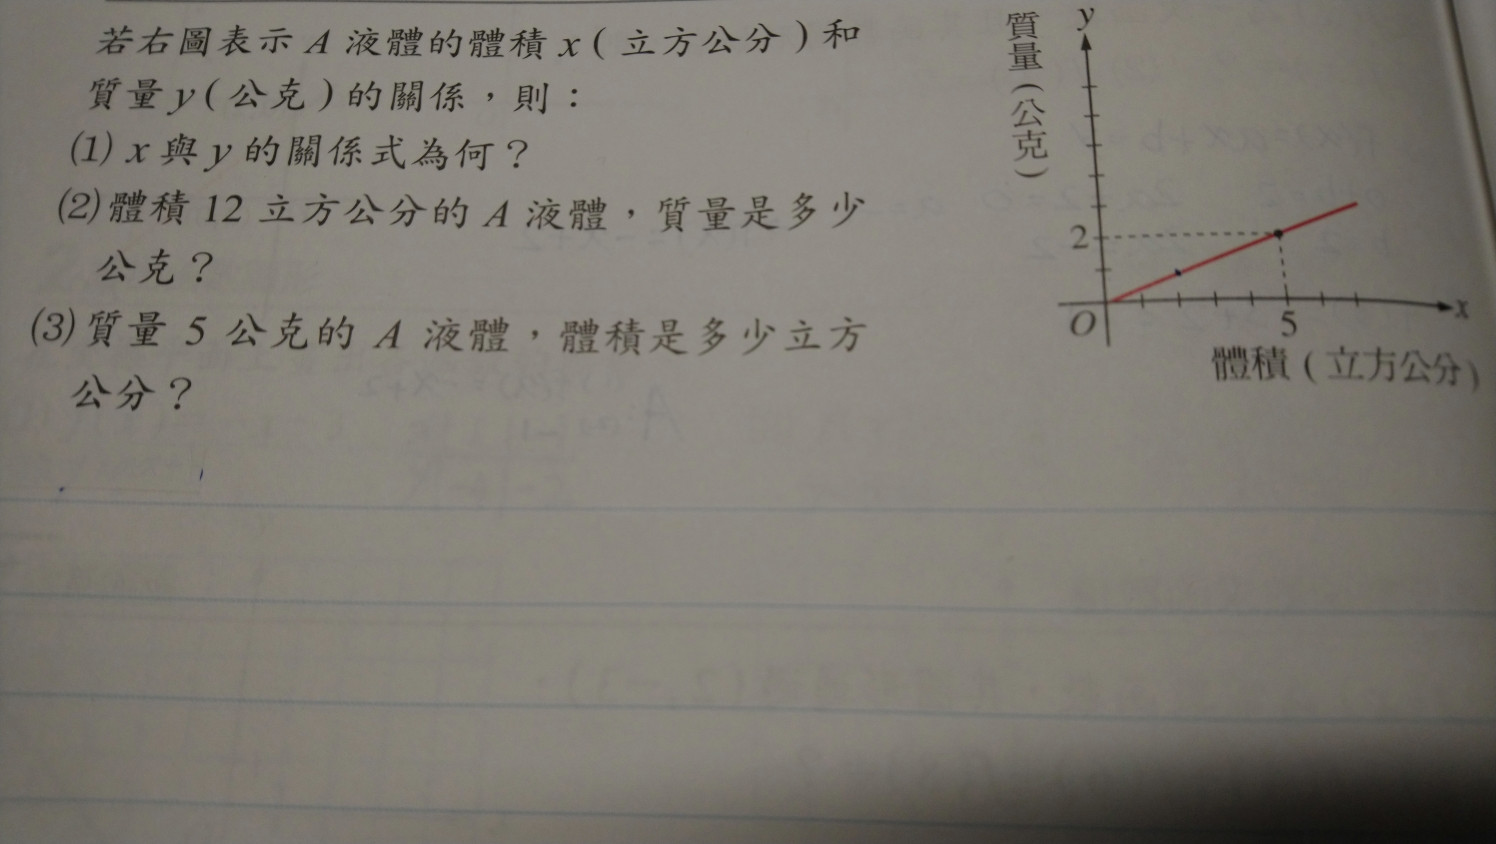 若右圖表示 A 液體的體積 x ( 立方公分 ) 和
質量 y ( 公克 ) 的關係，則：
⑴ x 與 y 的關係式為何？
⑵ 體積 12 立方公分的 A 液體，質量是多少
公克？
⑶ 質量 5 公克的 A 液體，體積是多少立方
公分？
質量(公克)
y
2
O
5
x
體積 ( 立方公分 )